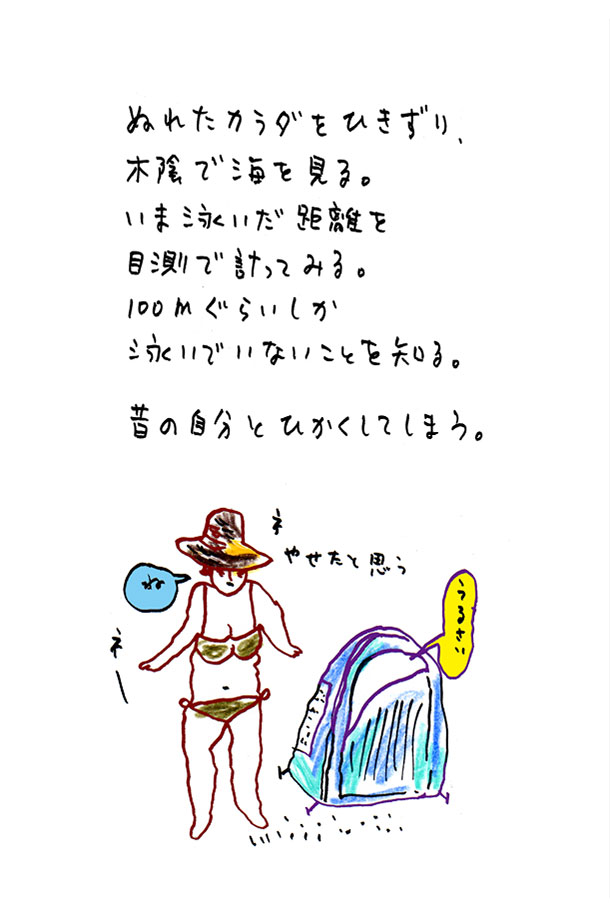 ぬれたカラダをひきずり、
木陰で海を見る。
いま泳いだ距離を
目測で計ってみる。
100mぐらいしか
泳いでいないことを知る。
昔の自分とひかくしてしまう。
ネ
やせたと思う
ね
ネー
うるさい